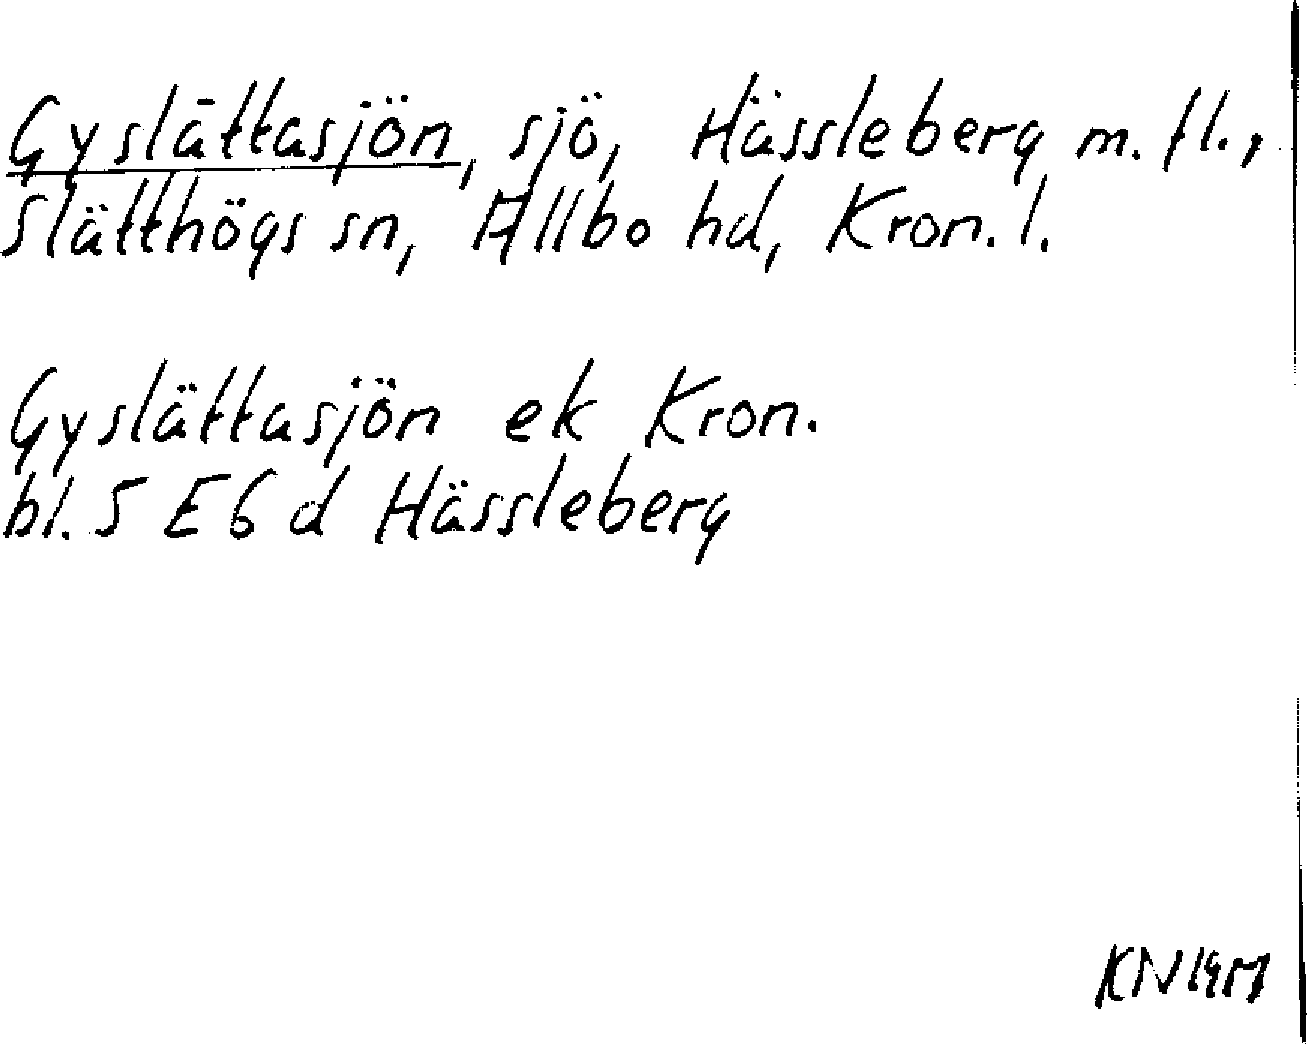 Gyslättasjön, sjö, Hässleberg m. fl.,
Slätthögs sn, Allbo hd, Kron. l.
Gyslättasjön ek Kron.
bl. 5 E 6 d Hässleberg